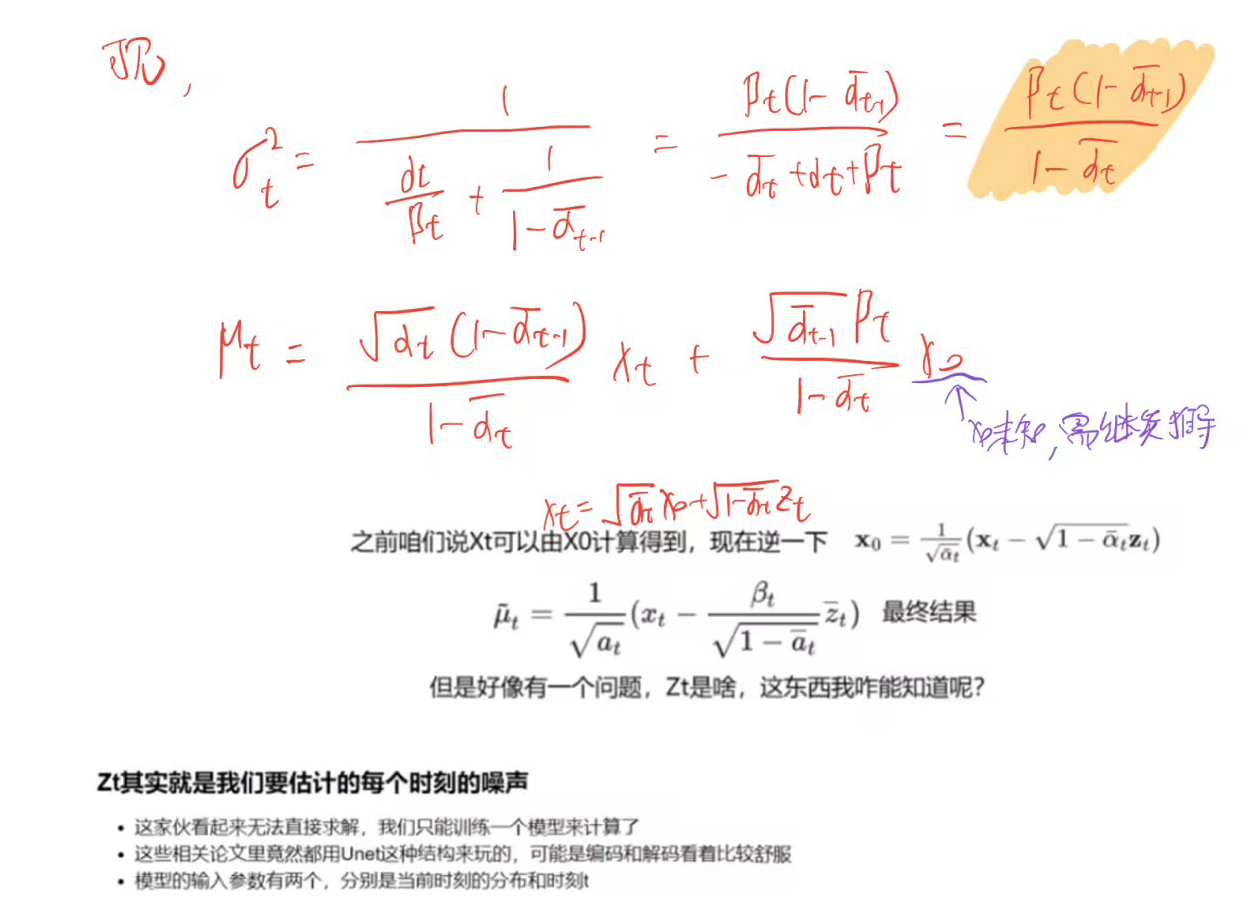 可见,
σ_t² = 1 / (αt/βt + 1/(1-ᾱ_{t-1})) = βt(1-ᾱ_{t-1}) / (-ᾱt+αt+βt) = βt(1-ᾱ_{t-1}) / (1-ᾱt)
μt = √αt (1-ᾱ_{t-1}) / (1-ᾱt) xt + √ᾱ_{t-1} βt / (1-ᾱt) x0
↑ x0未知,需继续推导
xt = √ᾱt x0 + √(1-ᾱt) zt
之前咱们说Xt可以由X0计算得到，现在逆一下 x₀ = 1/√ᾱt (xt − √(1 − ᾱt) zt)
μ̃t = 1/√at (xt − βt/√(1 − āt) z̄t) 最终结果
但是好像有一个问题，Zt是啥，这东西我咋能知道呢？
Zt其实就是我们要估计的每个时刻的噪声
• 这家伙看起来无法直接求解，我们只能训练一个模型来计算了
• 这些相关论文里竟然都用Unet这种结构来玩的，可能是编码和解码看着比较舒服
• 模型的输入参数有两个，分别是当前时刻的分布和时刻t